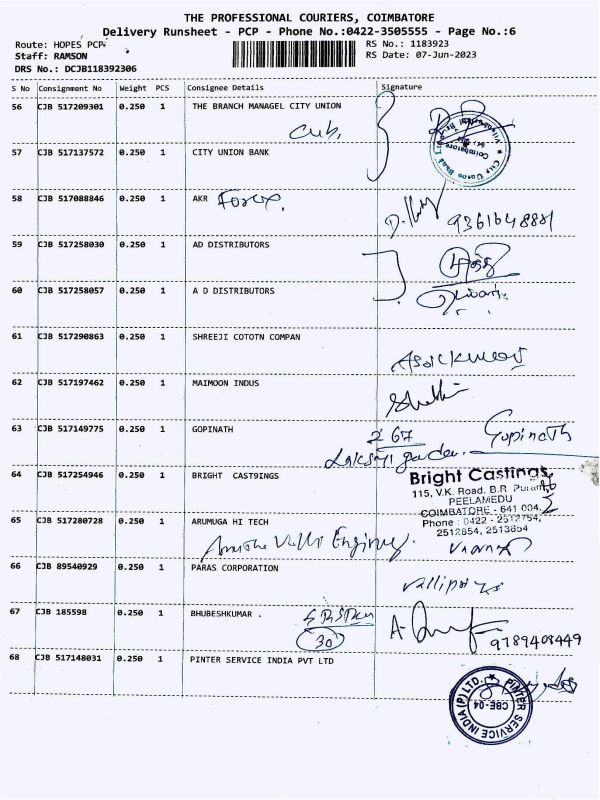 THE PROFESSIONAL COURIERS, COIMBATORE
Delivery Runsheet - PCP - Phone No.:0422-3505555 - Page No.:6
Route: HOPES PCP
Staff: RAMSON
DRS No.: DCJB118392306
RS No.: 1183923
RS Date: 07-Jun-2023
S No Consignment No Weight PCS Consignee Details Signature
56 CJB 517209301 0.250 1 THE BRANCH MANAGEL CITY UNION
Cub,
57 CJB 517137572 0.250 1 CITY UNION BANK
City Union Bank
Coimbatore
58 CJB 517088846 0.250 1 AKR Forex.
9361648881
59 CJB 517258030 0.250 1 AD DISTRIBUTORS
60 CJB 517258057 0.250 1 A D DISTRIBUTORS
61 CJB 517290863 0.250 1 SHREEJI COTOTN COMPAN
62 CJB 517197462 0.250 1 MAIMOON INDUS
63 CJB 517149775 0.250 1 GOPINATH
267 Gopinath
64 CJB 517254946 0.250 1 BRIGHT CAST9INGS
Bright Castings
115, V.K. Road, B.R. Puram,
PEELAMEDU
COIMBATORE - 641 004.
Phone : 0422 - 2512754,
2512854, 2513854
65 CJB 517280728 0.250 1 ARUMUGA HI TECH
66 CJB 89540929 0.250 1 PARAS CORPORATION
67 CJB 185598 0.250 1 BHUBESHKUMAR .
30
9789408449
68 CJB 517148031 0.250 1 PINTER SERVICE INDIA PVT LTD
PINTER SERVICE INDIA (P) LTD.
CBE-04